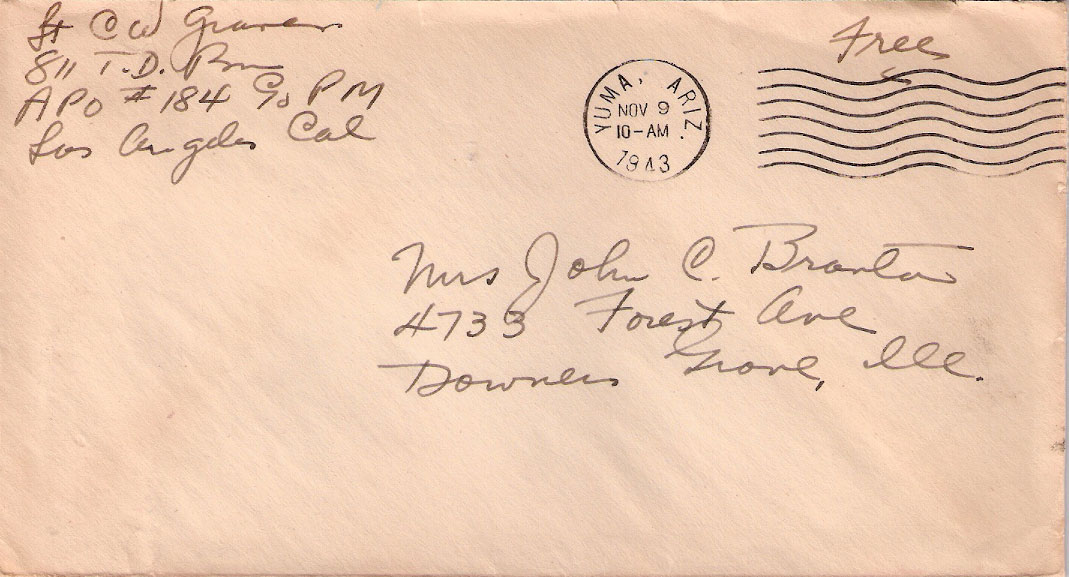 Lt C W Graver
811 T.D. Bn
APO #184 % PM
Los Angeles Cal
Free
YUMA, ARIZ.
NOV 9
10-AM
1943
Mrs John C. Branton
4733 Forest Ave
Downers Grove, Ill.